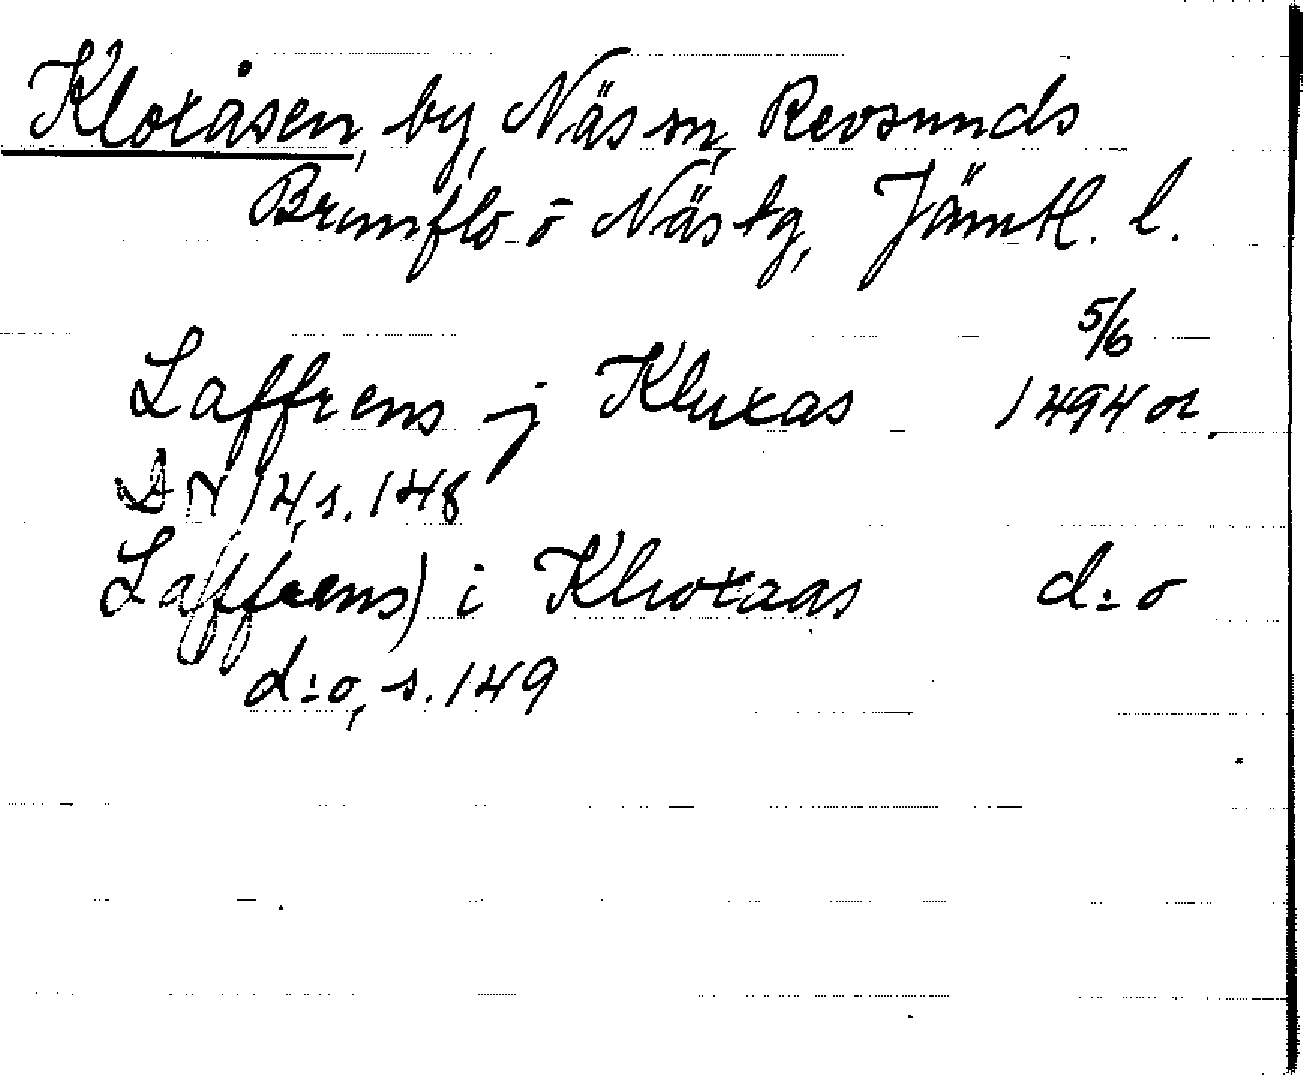 Kloxåsen, by, Näs sn, Revsunds
Brunflo o Näs tg, Jämtl. l.
5/6
Laffrens j Kluxas 1494 or.
DN 14, s. 148
Laffrens) i Kloxaas d:o
d:o, s. 149